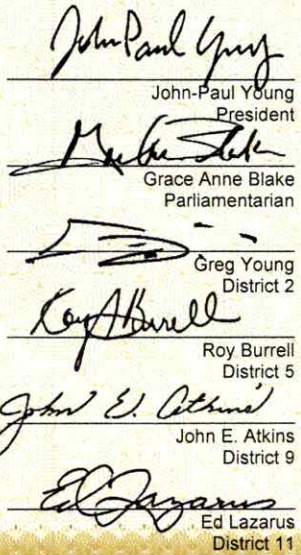 John Paul Young
John-Paul Young
President
Grace Anne Blake
Parliamentarian
Greg Young
District 2
Roy A Burrell
Roy Burrell
District 5
John E. Atkins
John E. Atkins
District 9
Ed Lazarus
Ed Lazarus
District 11